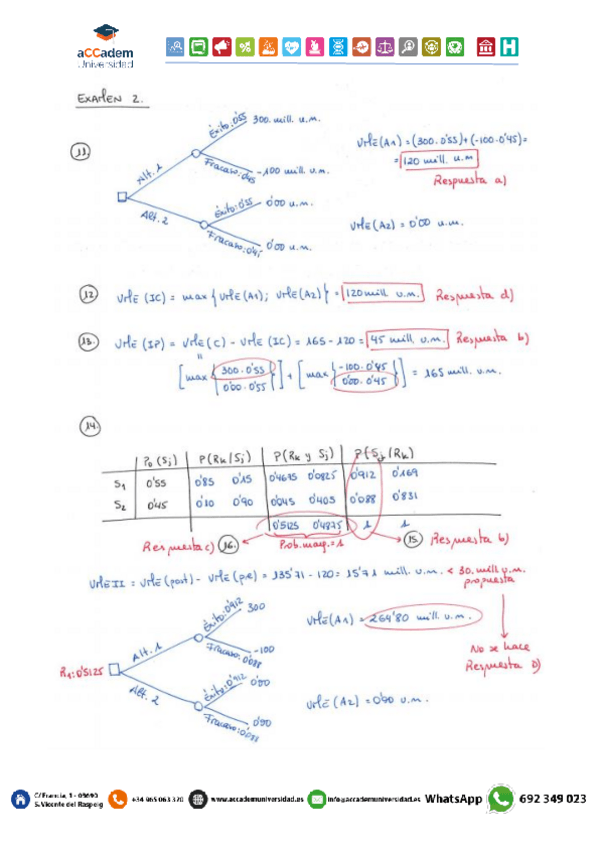 aCCadem
Universidad
EXAMEN 2.
11)
Alt. 1
Éxito: 0'55
300. mill. u.m.
Fracaso: 0'45
-100 mill. u.m.
Alt. 2
Éxito: 0'55
0'00 u.m.
Fracaso: 0'45
0'00 u.m.
VME(A1) = (300·0'55)+(-100·0'45)=
= 120 mill. u.m
Respuesta a)
VME(A2) = 0'00 u.m.
12) VME (IC) = max { VME(A1); VME(A2)} = 120 mill. u.m. Respuesta d)
13. VME (IP) = VME(C) - VME (IC) = 165 - 120 = 45 mill. u.m. Respuesta b)
[max { 300·0'55 / 0'00·0'55 }] + [max { -100·0'45 / 0'00·0'45 }] = 165 mill. u.m.
14.
P0 (Sj) P(Rk/Sj) P(Rk y Sj) P(Sj/Rk)
S1 0'55 0'85 0'15 0'4675 0'0825 0'912 0'169
S2 0'45 0'10 0'90 0'045 0'405 0'088 0'831
0'5125 0'4875 1 1
Respuesta c) 16. Prob. marg. = 1 15. Respuesta b)
VME II = VME (post) - VME (pre) = 135'71 - 120 = 15'71 mill. u.m. < 30. mill u.m.
propuesta
No se hace
Respuesta D)
R1: 0'5125
Alt. 1
Éxito: 0'912
300
Fracaso: 0'088
-100
Alt. 2
Éxito: 0'912
0'00
Fracaso: 0'088
0'00
VME(A1) = 264'80 mill. u.m.
VME (A2) = 0'00 u.m.
C/ Francia, 1 - 03690
S. Vicente del Raspeig
+34 965 063 320
www.accademuniversidad.es
info@accademuniversidad.es
WhatsApp
692 349 023